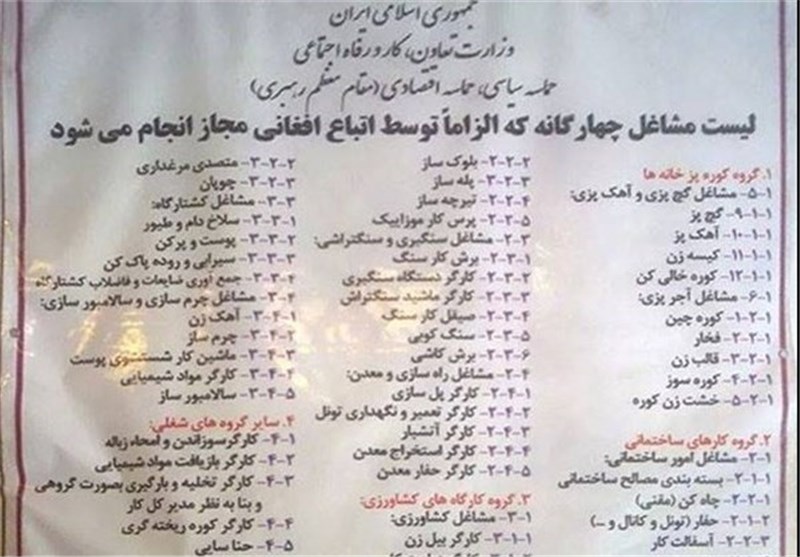 جمهوری اسلامی ایران
وزارت تعاون، کار و رفاه اجتماعی
حماسه سیاسی، حماسه اقتصادی (مقام معظم رهبری)
لیست مشاغل چهارگانه که الزاماً توسط اتباع افغانی مجاز انجام می شود
۱. گروه کوره پز خانه ها
۱-۵- مشاغل گچ پزی و آهک پزی:
۱-۱-۹- گچ پز
۱-۱-۱۰- آهک پز
۱-۱-۱۱- کیسه زن
۱-۱-۱۲- کوره خالی کن
۱-۶- مشاغل آجر پزی:
۱-۲-۱- کوره چین
۱-۲-۲- فخار
۱-۲-۳- قالب زن
۱-۲-۴- کوره سوز
۱-۲-۵- خشت زن کوره
۲. گروه کارهای ساختمانی
۲-۱- مشاغل امور ساختمانی:
۲-۱-۱- بسته بندی مصالح ساختمانی
۲-۲-۱- چاه کن (مقنی)
۲-۱-۲- حفار (تونل و کانال و ...)
۲-۲-۳- آسفالت کار
۲-۲-۲- بلوک ساز
۲-۲-۳- پله ساز
۲-۲-۴- تیرچه ساز
۲-۲-۵- پرس کار موزاییک
۲-۳- مشاغل سنگبری و سنگتراشی:
۲-۳-۱- برش کار سنگ
۲-۳-۲- کارگر دستگاه سنگبری
۲-۳-۳- کارگر ماشید سنگتراش
۲-۳-۴- صیقل کار سنگ
۲-۳-۵- سنگ کوبی
۲-۳-۶- برش کاشی
۲-۴- مشاغل راه سازی و معدن:
۲-۴-۱- کارگر پل سازی
۲-۴-۲- کارگر تعمیر و نگهداری تونل
۲-۴-۳- کارگر آتشبار
۲-۴-۴- کارگر استخراج معدن
۲-۴-۵- کارگر حفار معدن
۳. گروه کارگاه های کشاورزی:
۳-۱- مشاغل کشاورزی:
۳-۱-۱- کارگر بیل زن
۳-۲-۲- متصدی مرغداری
۳-۲-۳- چوپان
۳-۳- مشاغل کشتارگاه:
۳-۳-۱- سلاخ دام و طیور
۳-۳-۲- پوست و پرکن
۳-۳-۳- سیرابی و روده پاک کن
۳-۳-۴- جمع آوری ضایعات و فاضلاب کشتارگاه
۳-۴- مشاغل چرم سازی و سالامبور سازی:
۳-۴-۱- آهک زن
۳-۴-۲- چرم ساز
۳-۴-۳- ماشین کار شستشوی پوست
۳-۴-۴- کارگر مواد شیمیایی
۳-۴-۵- سالامبور ساز
۴. سایر گروه های شغلی:
۴-۱- کارگر سوزاندن و امحاء زباله
۴-۲- کارگر بازیافت مواد شیمیایی
۴-۳- کارگر تخلیه و بارگیری بصورت گروهی
و بنا به نظر مدیر کل کار
۴-۴- کارگر کوره ریخته گری
۴-۵- حنا سایی